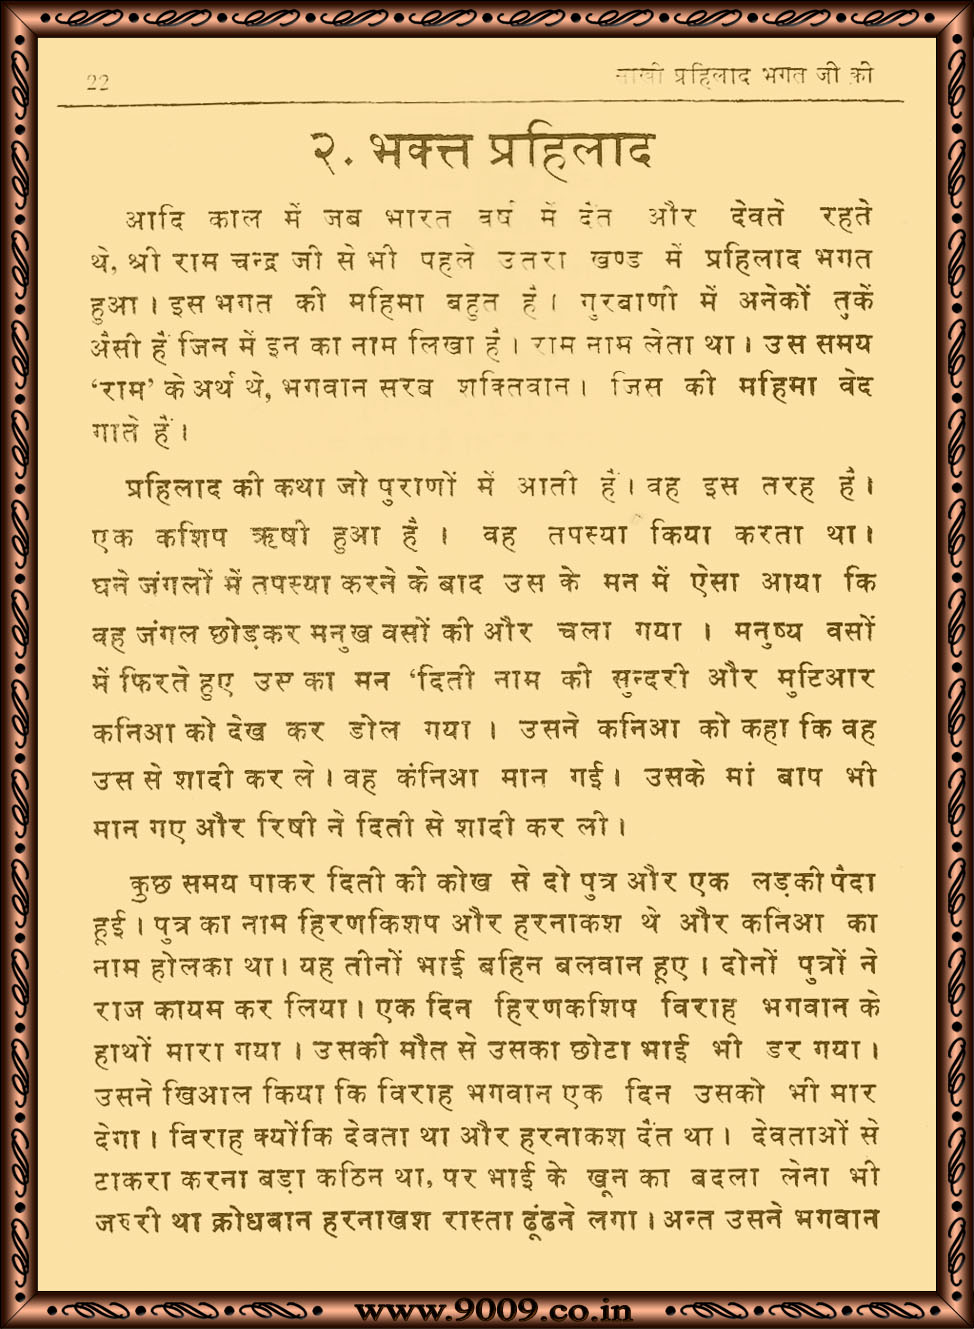 22 साखी प्रहिलाद भगत जी की
२. भक्त प्रहिलाद
आदि काल में जब भारत वर्ष में दैत और देवते रहते
थे, श्री राम चन्द्र जी से भी पहले उतरा खण्ड में प्रहिलाद भगत
हुआ । इस भगत की महिमा बहुत है । गुरबाणी में अनेकों तुकें
अैसी हैं जिन में इन का नाम लिखा है । राम नाम लेता था । उस समय
‘राम’ के अर्थ थे, भगवान सरब शक्तिवान । जिस की महिमा वेद
गाते हैं ।
प्रहिलाद की कथा जो पुराणों में आती है । वह इस तरह है ।
एक कशिप ऋषी हुआ है । वह तपस्या किया करता था ।
घने जंगलों में तपस्या करने के बाद उस के मन में ऐसा आया कि
वह जंगल छोड़कर मनुख वसों की और चला गया । मनुष्य वसों
में फिरते हुए उस का मन ‘दिती नाम की सुन्दरी और मुटिआर
कनिआ को देख कर डोल गया । उसने कनिआ को कहा कि वह
उस से शादी कर ले । वह कंनिआ मान गई । उसके मां बाप भी
मान गए और रिषी ने दिती से शादी कर ली ।
कुछ समय पाकर दिती की कोख से दो पुत्र और एक लड़की पैदा
हूई । पुत्र का नाम हिरणकिशप और हरनाकश थे और कनिआ का
नाम होलका था । यह तीनों भाई बहिन बलवान हूए । दोनों पुत्रों ने
राज कायम कर लिया । एक दिन हिरणकशिप विराह भगवान के
हाथों मारा गया । उसकी मौत से उसका छोटा भाई भी डर गया ।
उसने खिआल किया कि विराह भगवान एक दिन उसको भी मार
देगा । विराह क्योंकि देवता था और हरनाकश दैंत था । देवताओं से
टाकरा करना बड़ा कठिन था, पर भाई के खून का बदला लेना भी
जरुरी था क्रोधवान हरनाखश रास्ता ढूंढने लगा । अन्त उसने भगवान
www.9009.co.in